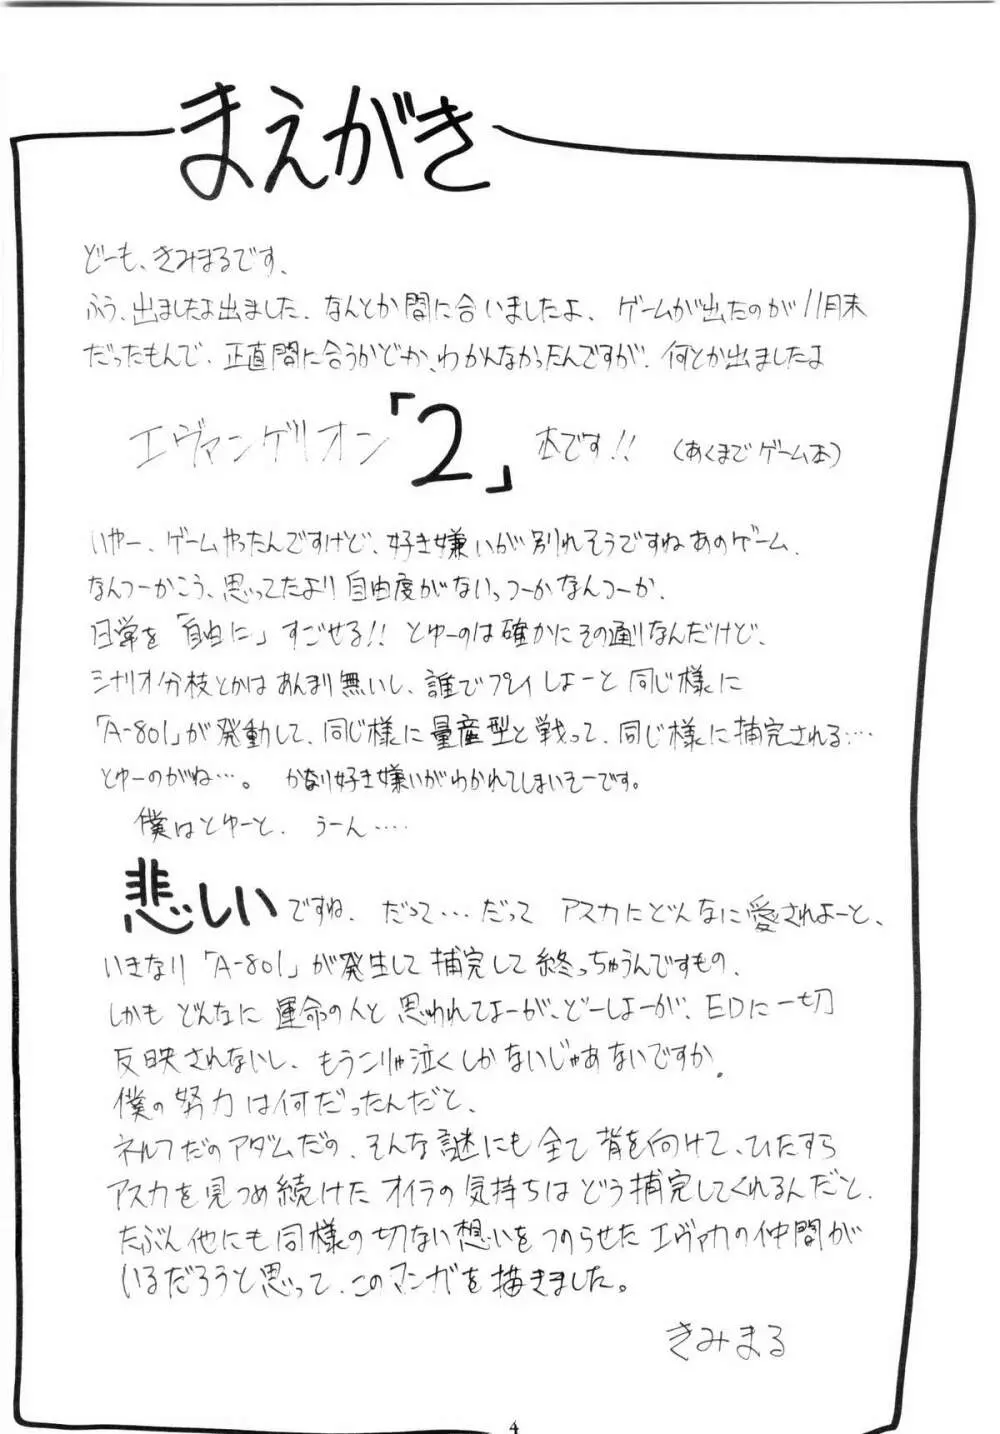 まえがき
どーも、きみまるです、
ふう、出ましたよ出ました、なんとか間に合いましたよ、ゲームが出たのが11月末
だったもんで、正直間に合うかどーか、わかんなかったんですが、何とか出ましたよ
エヴァンゲリオン「2」本です!!（あくまでゲーム本）
いやー、ゲームやったんですけど、好き嫌いが別れそうですねあのゲーム、
なんつーかこう、思ってたより自由度がないっつーかなんつーか、
日常を「自由に」すごせる!!とゆーのは確かにその通りなんだけど、
シナリオ分枝とかはあんまり無いし、誰でプレイしよーと同じ様に
「A-801」が発動して、同じ様に量産型と戦って、同じ様に補完される…
とゆーのがね…。かなり好き嫌いがわかれてしまいそーです。
僕はとゆーと、うーん‥‥
悲しいですね、だって…だってアスカにどんなに愛されよーと、
いきなり「A-801」が発生して補完して終っちゃうんですもの、
しかもどんなに運命の人と思われてよーが、どーしよーが、EDに一切
反映されないし、もうこりゃ泣くしかないじゃあないですか、
僕の努力は何だったんだと、
ネルフだのアダムだの、そんな謎にも全て背を向けて、ひたすら
アスカを見つめ続けたオイラの気持ちはどう補完してくれるんだと、
たぶん他にも同様の切ない想いをつのらせたエヴァカの仲間が
いるだろうと思って、このマンガを描きました。
きみまる
4